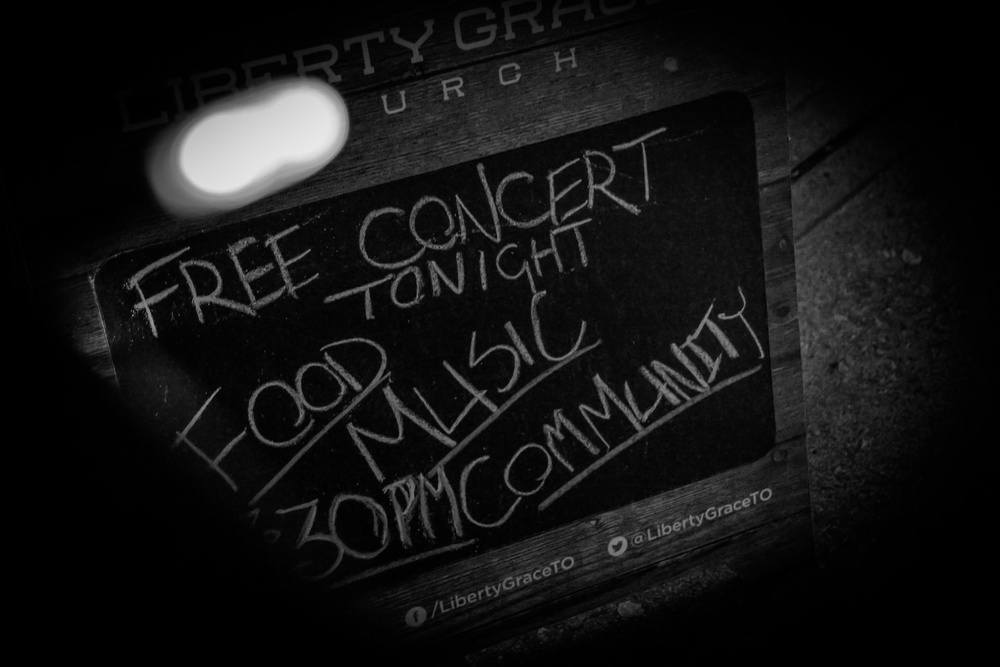 LIBERTY GRAC
URCH
FREE CONCERT
TONIGHT
FOOD
MUSIC
COMMUNITY
30PM
/LibertyGraceTO
@LibertyGraceTO